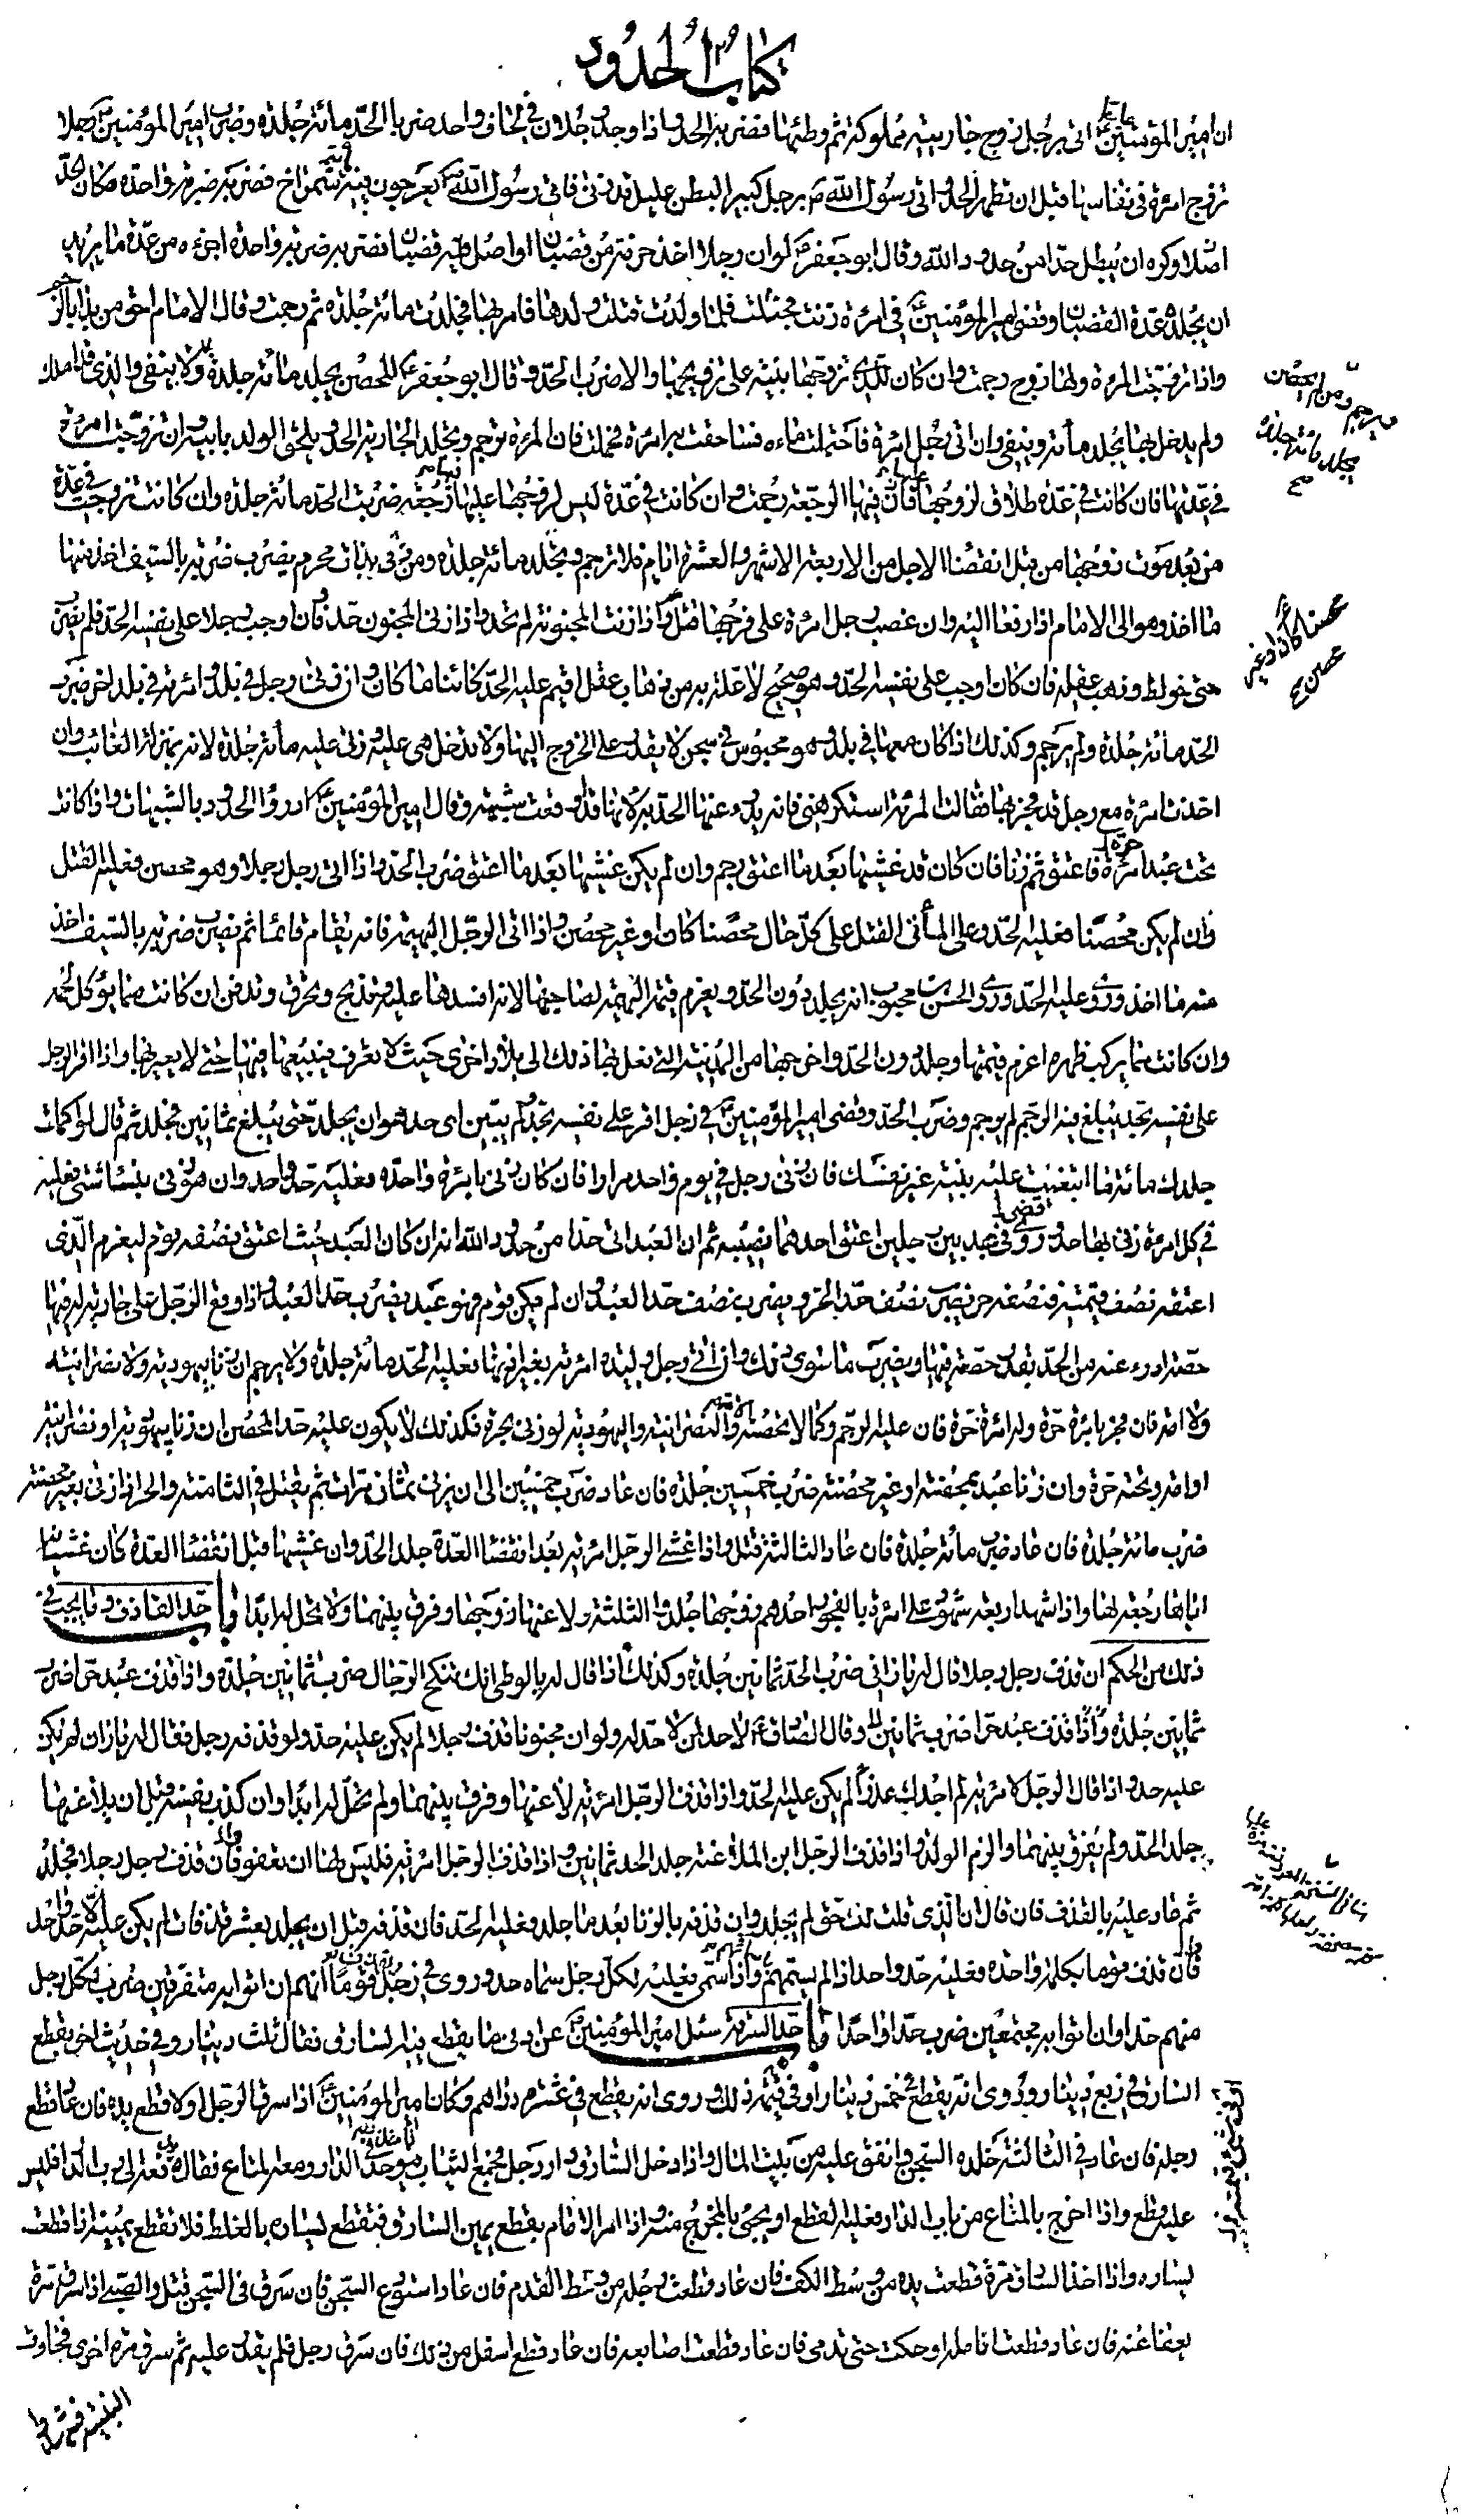 كتاب الحدود
ان امير المؤمنين اتى برجل زوج جاريته مملوكه ثم وطئها فضربه الحد واذا وجد رجلان في لحاف واحد ضربا الحد مائة جلدة وضرب امير المؤمنين رجلا
تزوج امرة في نفاسها قبل ان تطهر الحد واتى رسول الله برجل كبير البطن عليل قد زنى فاتى رسول الله بعرجون فيه شمراخ فضربه ضربة واحدة مكان الحد
وكره ان يبطل حدا من حدود الله وقال ابو جعفر لو ان رجلا اخذ حزمة من قضبان او اصلا فيه قضبان فضربه ضربة واحدة اجزءه من عدة ما يريد
ان يجلده عدة القضبان وقضى امير المؤمنين في امرة زنت فحبلت فلما ولدت قتلت ولدها فامر بها فجلدت مائة جلدة ثم رجمت وقال الامام احق من بدا بالرجم
واذا تزوجت المرءة ولها زوج رجمت وان كان للذي تزوجها بينة على تزويجها والا ضرب الحد وقال ابو جعفر المحصن يجلد مائة جلدة ولا ينفى والذي قد املك
ولم يدخل بها يجلد مائة وينفى وان اتى رجل امرة فاحتملت ماءه فساحقت به امرءة فحملت فان المرءة ترجم وتجلد الجارية الحد ويلحق الولد بابيه وان تزوجت امرءة
في عدتها فان كانت في عدة طلاق لزوجها عليها فيها الرجعة رجمت وان كانت في عدة ليس لزوجها عليها رجعة ضربت الحد مائة جلدة وان كانت تزوجت في عدة
من بعد موت زوجها من قبل انقضاء الاجل من الاربعة الاشهر والعشرة ايام فلا ترجم وتجلد مائة جلدة ومن زنى بذات محرم يضرب ضربة بالسيف اخذ منها
ما اخذ وهو الى الامام اذا رفعا اليه وان غصب رجل امرءة على فرجها قتل واذا زنت المجنونة لم تحد واذا زنى المجنون حد فان اوجب رجلا على نفسه الحد فلم يضرب
حتى خولط وذهب عقله فان كان اوجب على نفسه الحد وهو صحيح لا علة به من ذهاب عقل اقيم عليه الحد كائنا ما كان وان زنى رجل في بلد وامرءته في بلد اخر ضرب
الحد مائة جلدة ولم يرجم وكذلك اذا كان معها في بلد وهو محبوس في سجن لا يقدر على الخروج اليها ولا تدخل هي عليه وزنى عليه مائة جلدة لانه بمنزلة الغائب وان
اخذت امرءة مع رجل قد فجر بها فقالت المرءة استكرهني فانه يدرء عنها الحد لانها قد وقعت شبهة وقال امير المؤمنين ادرؤا الحدود بالشبهات واذا كانت
تحت عبد حرة فاعتق ثم زنا فان كان قد غشيها بعد ما اعتق رجم وان لم يكن غشيها بعد ما اعتق ضرب الحد واذا اتى رجل رجلا وهو محصن فعليه القتل
وان لم يكن محصنا فعليه الحد وعلى المأتى القتل على كل حال محصنا كان او غير محصن واذا اتى الرجل البهيمة فانه يقام قائما ثم يضرب ضربة بالسيف اخذ
منه ما اخذ وروى عليه الحد وروى الحسن بن محبوب انه يجلد دون الحد ويغرم قيمة البهيمة لصاحبها لانه افسدها عليه وتذبح وتحرق وتدفن ان كانت مما يؤكل لحمه
وان كانت مما يركب ظهره اغرم قيمتها وجلد دون الحد واخرجها من المدينة التي فعل بها ذلك الى بلاد اخرى حيث لا تعرف فيبيعها فيها حتى لا يعير بها واذا اقر الرجل
على نفسه بحد يبلغ فيه الرجم لم يرجم وضرب الحد وقضى امير المؤمنين في رجل اقر على نفسه بحد ولم يبين اى حد هو ان يجلد حتى يبلغ ثمانين فجلد ثم قال لو اكملت
جلدك مائة ما ابتغيت عليه بينة غير نفسك فان زنى رجل في يوم واحد مرارا فان كان زنى بامرءة واحدة فعليه حد واحد وان هو زنى بنساء شتى فعليه
في كل امرءة زنى بها حد وروى في عبد بين رجلين اعتق احدهما نصيبه ثم ان العبد اتى حدا من حدود الله انه ان كان العبد حيث اعتق نصفه قوم ليغرم الذي
اعتقه نصف قيمته فنصفه حر يضرب نصف حد الحر ويضرب نصف حد العبد وان لم يكن قوم فهو عبد يضرب حد العبد واذا وقع الرجل على جارية له فيها
حصة ادرء عنه من الحد بقدر حصته فيها ويضرب ما سوى ذلك وان اتى رجل وليدة امرءته بغير اذنها فعليه الحد مائة جلدة ولا يرجم ان زنا بيهودية ولا نصرانية
ولا امة فان فجر بامرءة حرة وله امرءة حرة فان عليه الرجم وكما لا تحصنه الامة والنصرانية واليهودية لو زنى بحرة فكذلك لا يكون عليه حد المحصن ان زنا بيهودية او نصرانية
او امة وتحته حرة وان زنا عبد بمحصنة او غير محصنة ضرب خمسين جلدة فان عاد ضرب خمسين الى ان يزنى ثمان مرات ثم يقتل في الثامنة والحر اذا زنى بغير محصنة
ضرب مائة جلدة فان عاد ضرب مائة جلدة فان عاد الثالثة قتل واذا غشى الرجل امرءته بعد انقضاء العدة جلد الحد وان غشيها قبل انقضاء العدة كان غشيانه
اياها رجعة لها واذا شهد اربعة شهود على امرءة بالفجور احدهم زوجها جلدوا الثلثة ولاعنها زوجها وفرق بينهما ولا تحل له ابدا باب حد القاذف وما يجب في
ذلك من الحكم ان قذف رجل رجلا فقال له يا زاني ضرب الحد ثمانين جلدة وكذلك اذا قال له يا لوطي انك تنكح الرجال ضرب ثمانين جلدة واذا قذف عبد حرا ضرب
ثمانين جلدة واذا قذف عبد حرا ضرب ثمانين وقال الصادق لا حد لمن لا حد له ولو ان مجنونا قذف رجلا لم يكن عليه حد ولو قذفه رجل فقال له يا زان لم يكن
عليه حد واذا قال الرجل لامرءته لم اجدك عذراء لم يكن عليه الحد واذا قذف الرجل امرءته لاعنها وفرق بينهما ولم تحل له ابدا وان كذب نفسه قبل ان يلاعنها
جلد الحد ولم يفرق بينهما والزم الولد واذا قذف الرجل ابن الملاعنة جلد الحد ثمانين واذا قذف الرجل امرءته فليس لها ان تعفو فان قذف رجل رجلا فجلد
ثم عاد عليه بالقذف فان قال ان الذي قلت لك حق لم يجلد وان قذفه بالزنا بعد ما جلد فعليه الحد فان قذفه قبل ان يجلد بعشر قذفات لم يكن عليه الا حد واحد
فان قذف قوما بكلمة واحدة فعليه حد واحد اذا لم يسمهم واذا سمى فعليه لكل رجل سماه حد وروى في رجل قذف قوما انهم ان اتوا به متفرقين ضرب لكل رجل
منهم حدا وان اتوا به مجتمعين ضرب حدا واحدا باب حد السرقة سئل امير المؤمنين عن ادنى ما يقطع فيه السارق فقال ثلث دينار وفي حديث اخر يقطع
السارق في ربع دينار وروى انه يقطع في خمس دينار او في قيمة ذلك وروى انه يقطع في عشرة دراهم وكان امير المؤمنين اذا سرق الرجل اولا قطع يده فان عاد قطع
رجله فان عاد في الثالثة خلده السجن وانفق عليه من بيت المال واذا دخل السارق دار رجل فجمع الثياب فيوخذ في الدار ومعه المتاع فقال دفعه الى رب الدار فليس
عليه قطع واذا اخرج بالمتاع من باب الدار فعليه القطع او يجئ بالمخرج منه واذا امر الامام بقطع يمين السارق فتقطع يساره بالغلط فلا تقطع يمينه اذا قطعت
يساره واذا اخذ السارق مرة قطعت يده من وسط الكف فان عاد قطعت رجله من وسط القدم فان عاد استودع السجن فان سرق في السجن قتل والصبي اذا سرق مرة
يعفا عنه فان عاد قطعت انامله او حكت حتى تدمى فان عاد قطعت اصابعه فان عاد قطع اسفل من ذلك فان سرق رجل فلم يقدر عليه ثم سرق مرة اخرى فجاءت
البينة فشهدوا